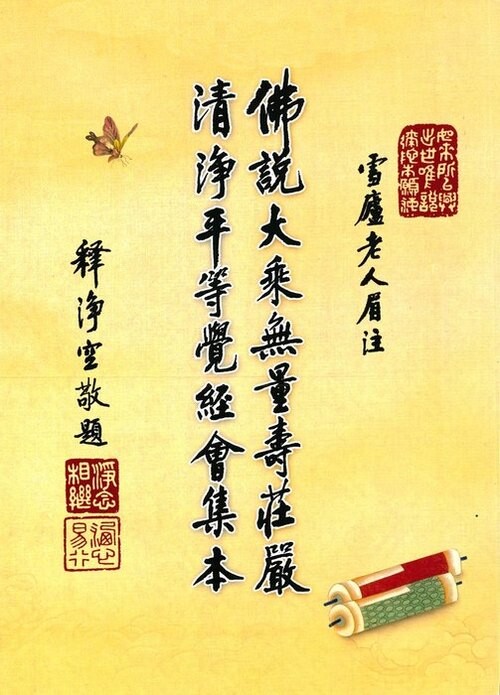 如來所以興
出世唯說
彌陀本願海
雪廬老人眉注
佛說大乘無量壽莊嚴
清淨平等覺經會集本
釋淨空敬題
淨念
相繼